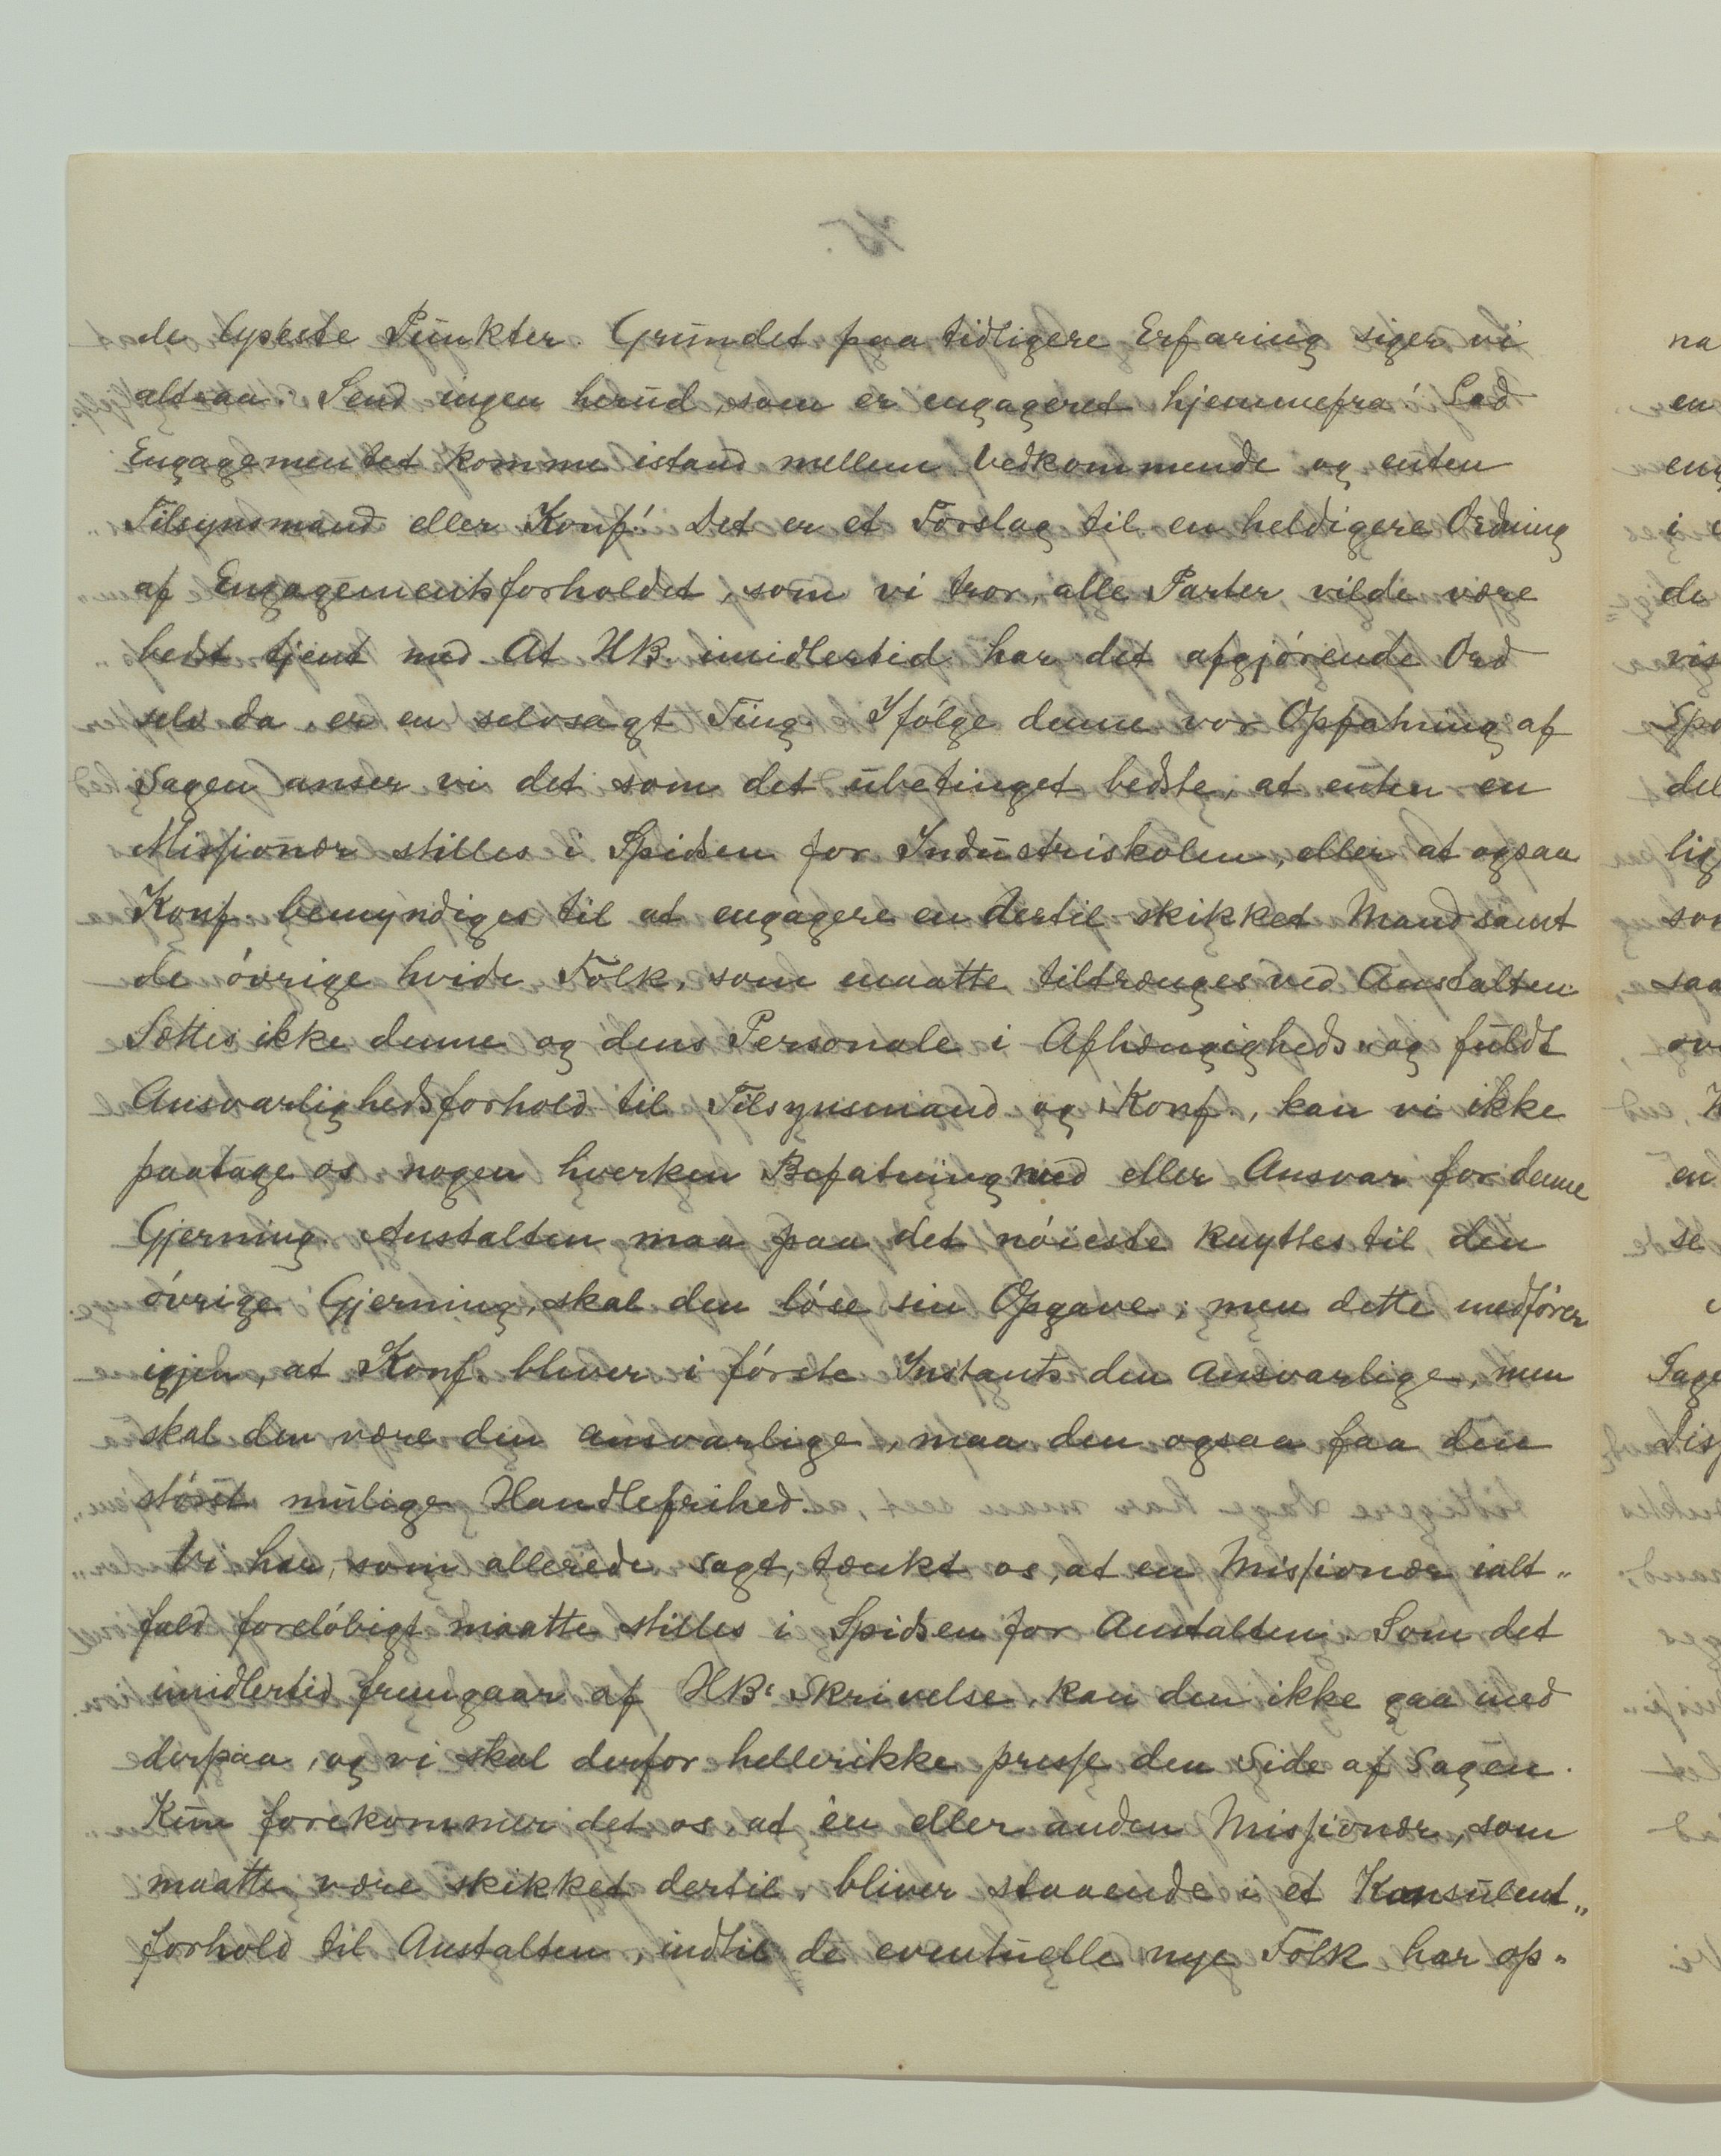 de lyseste Punkter. Grundet paa tidligere Erfaring siger vi
altsaa: Send ingen herud, som er engageret hjemmefra! Lad
Engagementet komme istand mellem Vedkommende og enten
Tilsynsmand eller Konf.! Det er et Forslag til en heldigere Ordning
af Engagementsforholdet, som vi tror, alle Parter vilde være
bedst tjent med. At HB imidlertid har det afgjórende Ord
selv da, er en selvsagt Ting. Ifólge denne vor Opfatning af
Sagen anser vi det som det ubetinget bedste, at enten en
Missionær stilles i Spidsen for Industriskolen, eller at ogsaa
Konf. bemyndiges til at engagere en dertil skikket Mand samt
de óvrige hvide Folk, som maatte tiltrænges ved Anstalten.
Sættes ikke denne og dens Personale i Afhængigheds- og fuldt
Ansvarlighedsforhold til Tilsynsmand og Konf., kan vi ikke
paatage os nogen hverken Befatning med eller Ansvar for denne
Gjerning. Anstalten maa paa det nóieste knyttes til den
óvrige Gjerning, skal den lóse sin Opgave; men dette medfórer
igjen, at Konf. bliver i fórste Instants den ansvarlige, men
skal den være den ansvarlige, maa den ogsaa faa den
stórst mulige Handlefrihed.
Vi har, som allerede sagt, tænkt os, at en Missionær ialt„
fald forelóbigt maatte stilles i Spidsen for Anstalten. Som det
imidlertid fremgaar af HBs Skrivelse, kan den ikke gaa med
derpaa, og vi skal derfor hellerikke presse den Side af Sagen.
Kun forekommer det os, at én eller anden Missionær, som
maatte være skikket dertil, bliver staaende i et Konsulent„
forhold til Anstalten, indtil de eventuelle nye Folk har op„